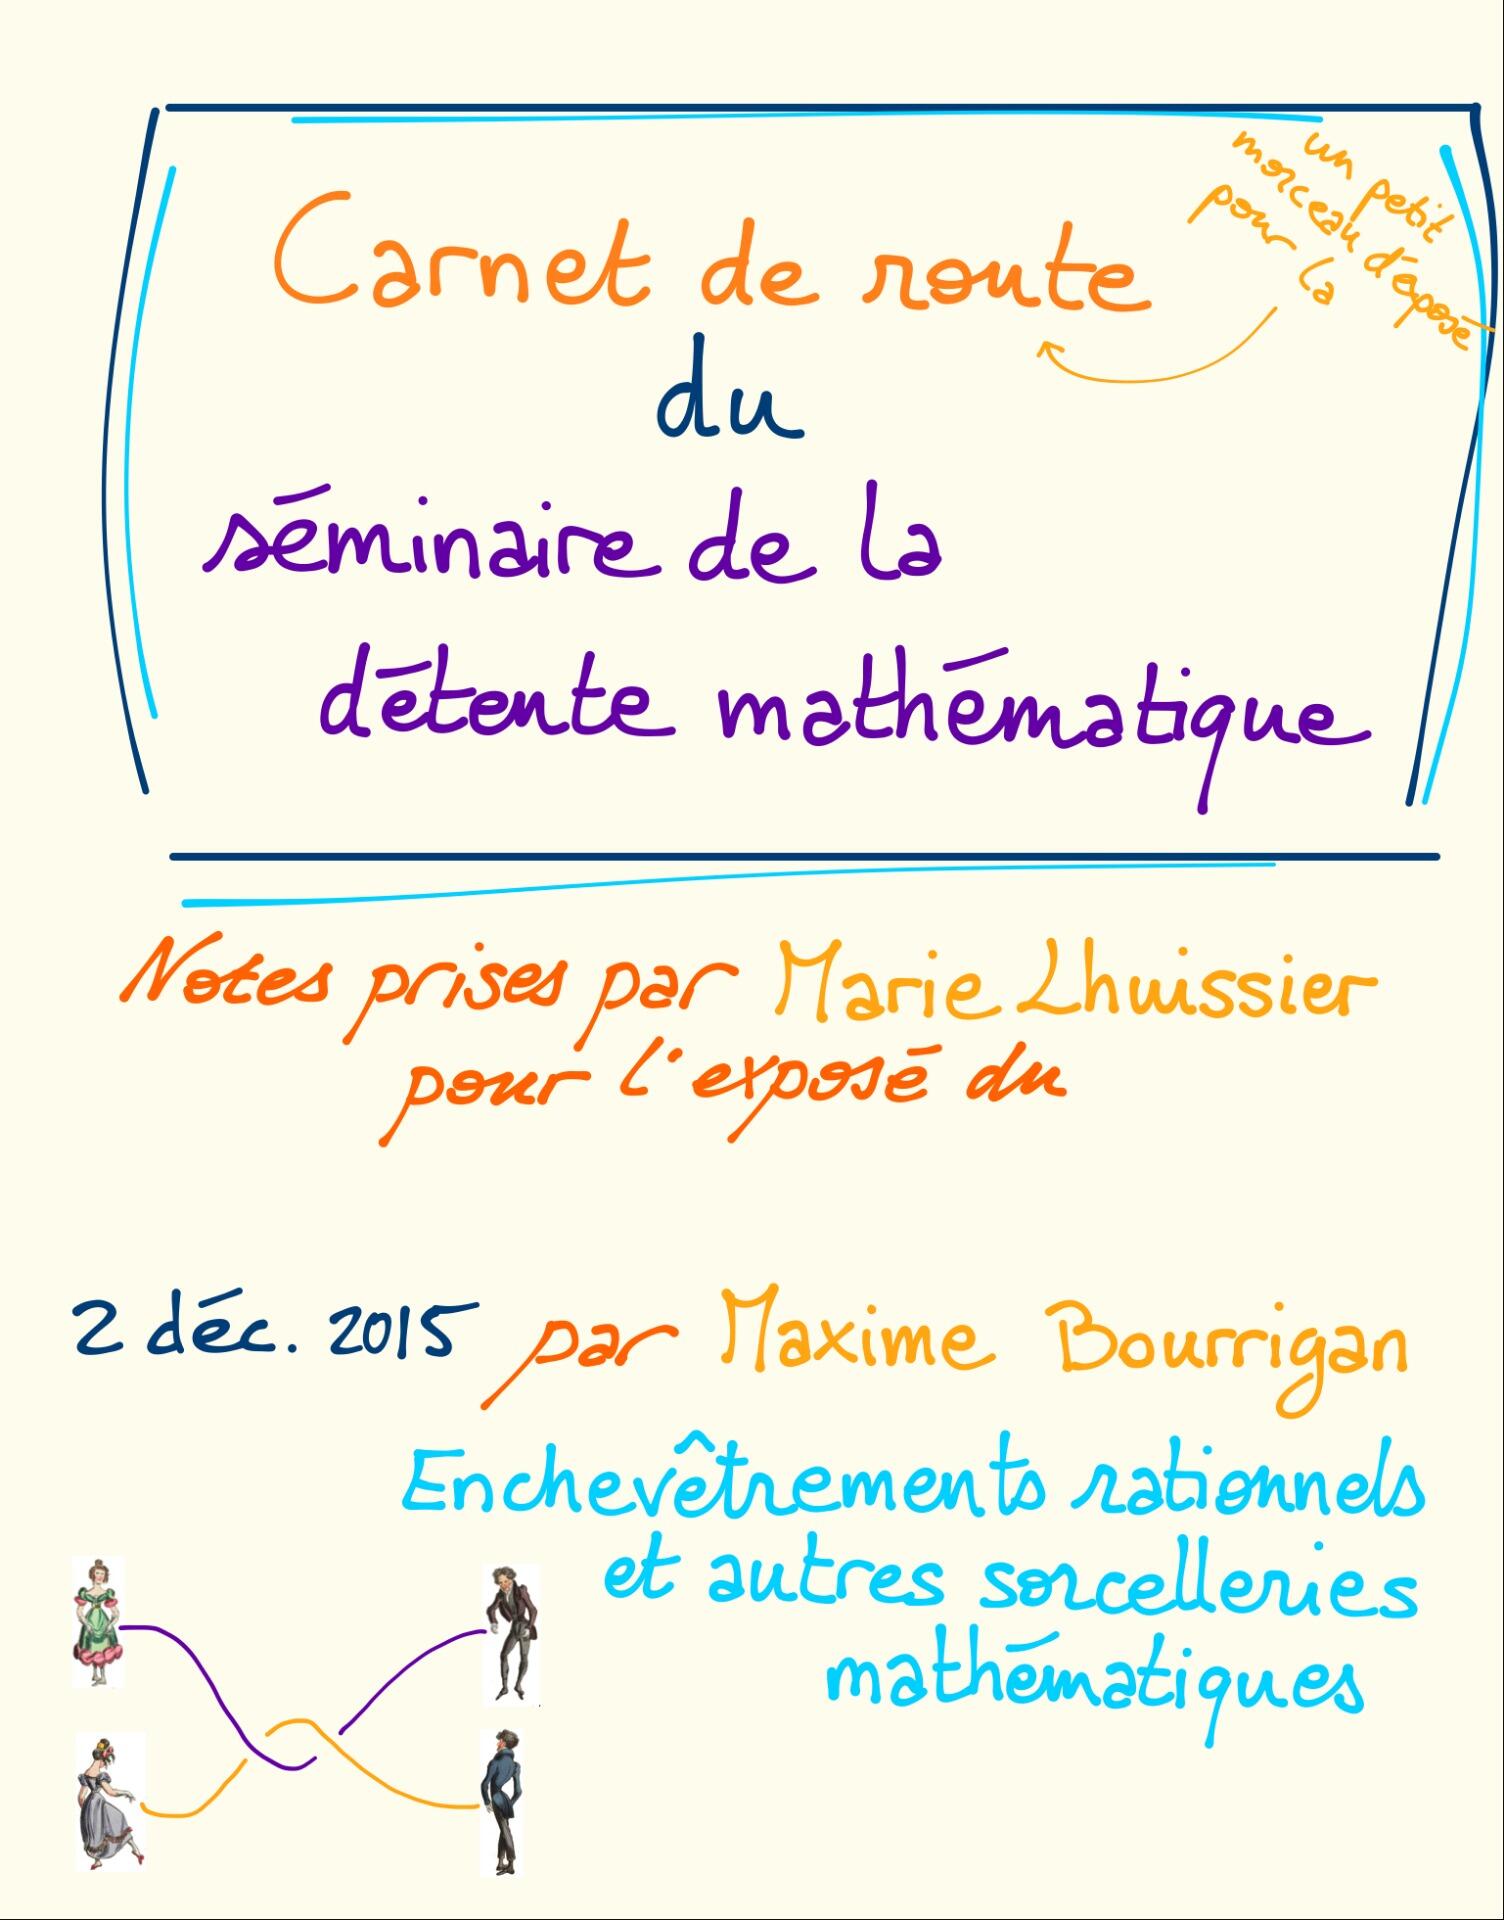 un petit
morceau d'exposé
pour la
Carnet de route
du
séminaire de la
détente mathématique
Notes prises par Marie Lhuissier
pour l'exposé du
2 déc. 2015 par Maxime Bourrigan
Enchevêtrements rationnels
et autres sorcelleries
mathématiques